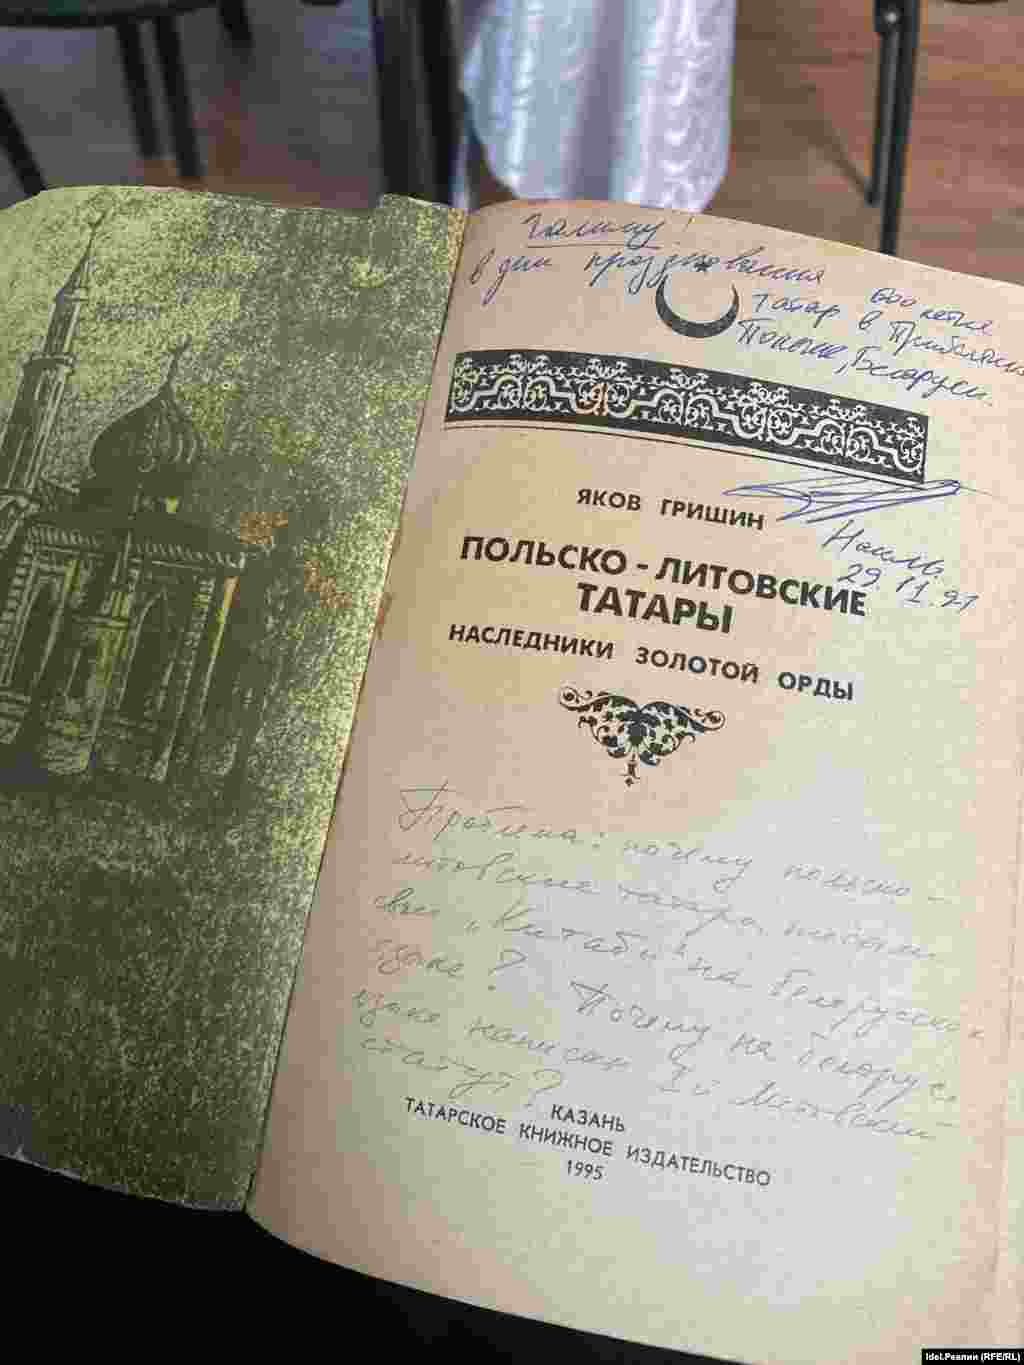 Галиму!
в дни празднования
600 летия
татар в Прибалтике
Польше, Беларуси.
ЯКОВ ГРИШИН
29.11.97
ПОЛЬСКО-ЛИТОВСКИЕ
ТАТАРЫ
НАСЛЕДНИКИ ЗОЛОТОЙ ОРДЫ
почему польско-
литовские татары писали
свои „Китабы" на белорусском
языке? Почему на белорус.
языке написан Литовский
статут?
КАЗАНЬ
ТАТАРСКОЕ КНИЖНОЕ ИЗДАТЕЛЬСТВО
1995
Idel.Реалии (RFE/RL)